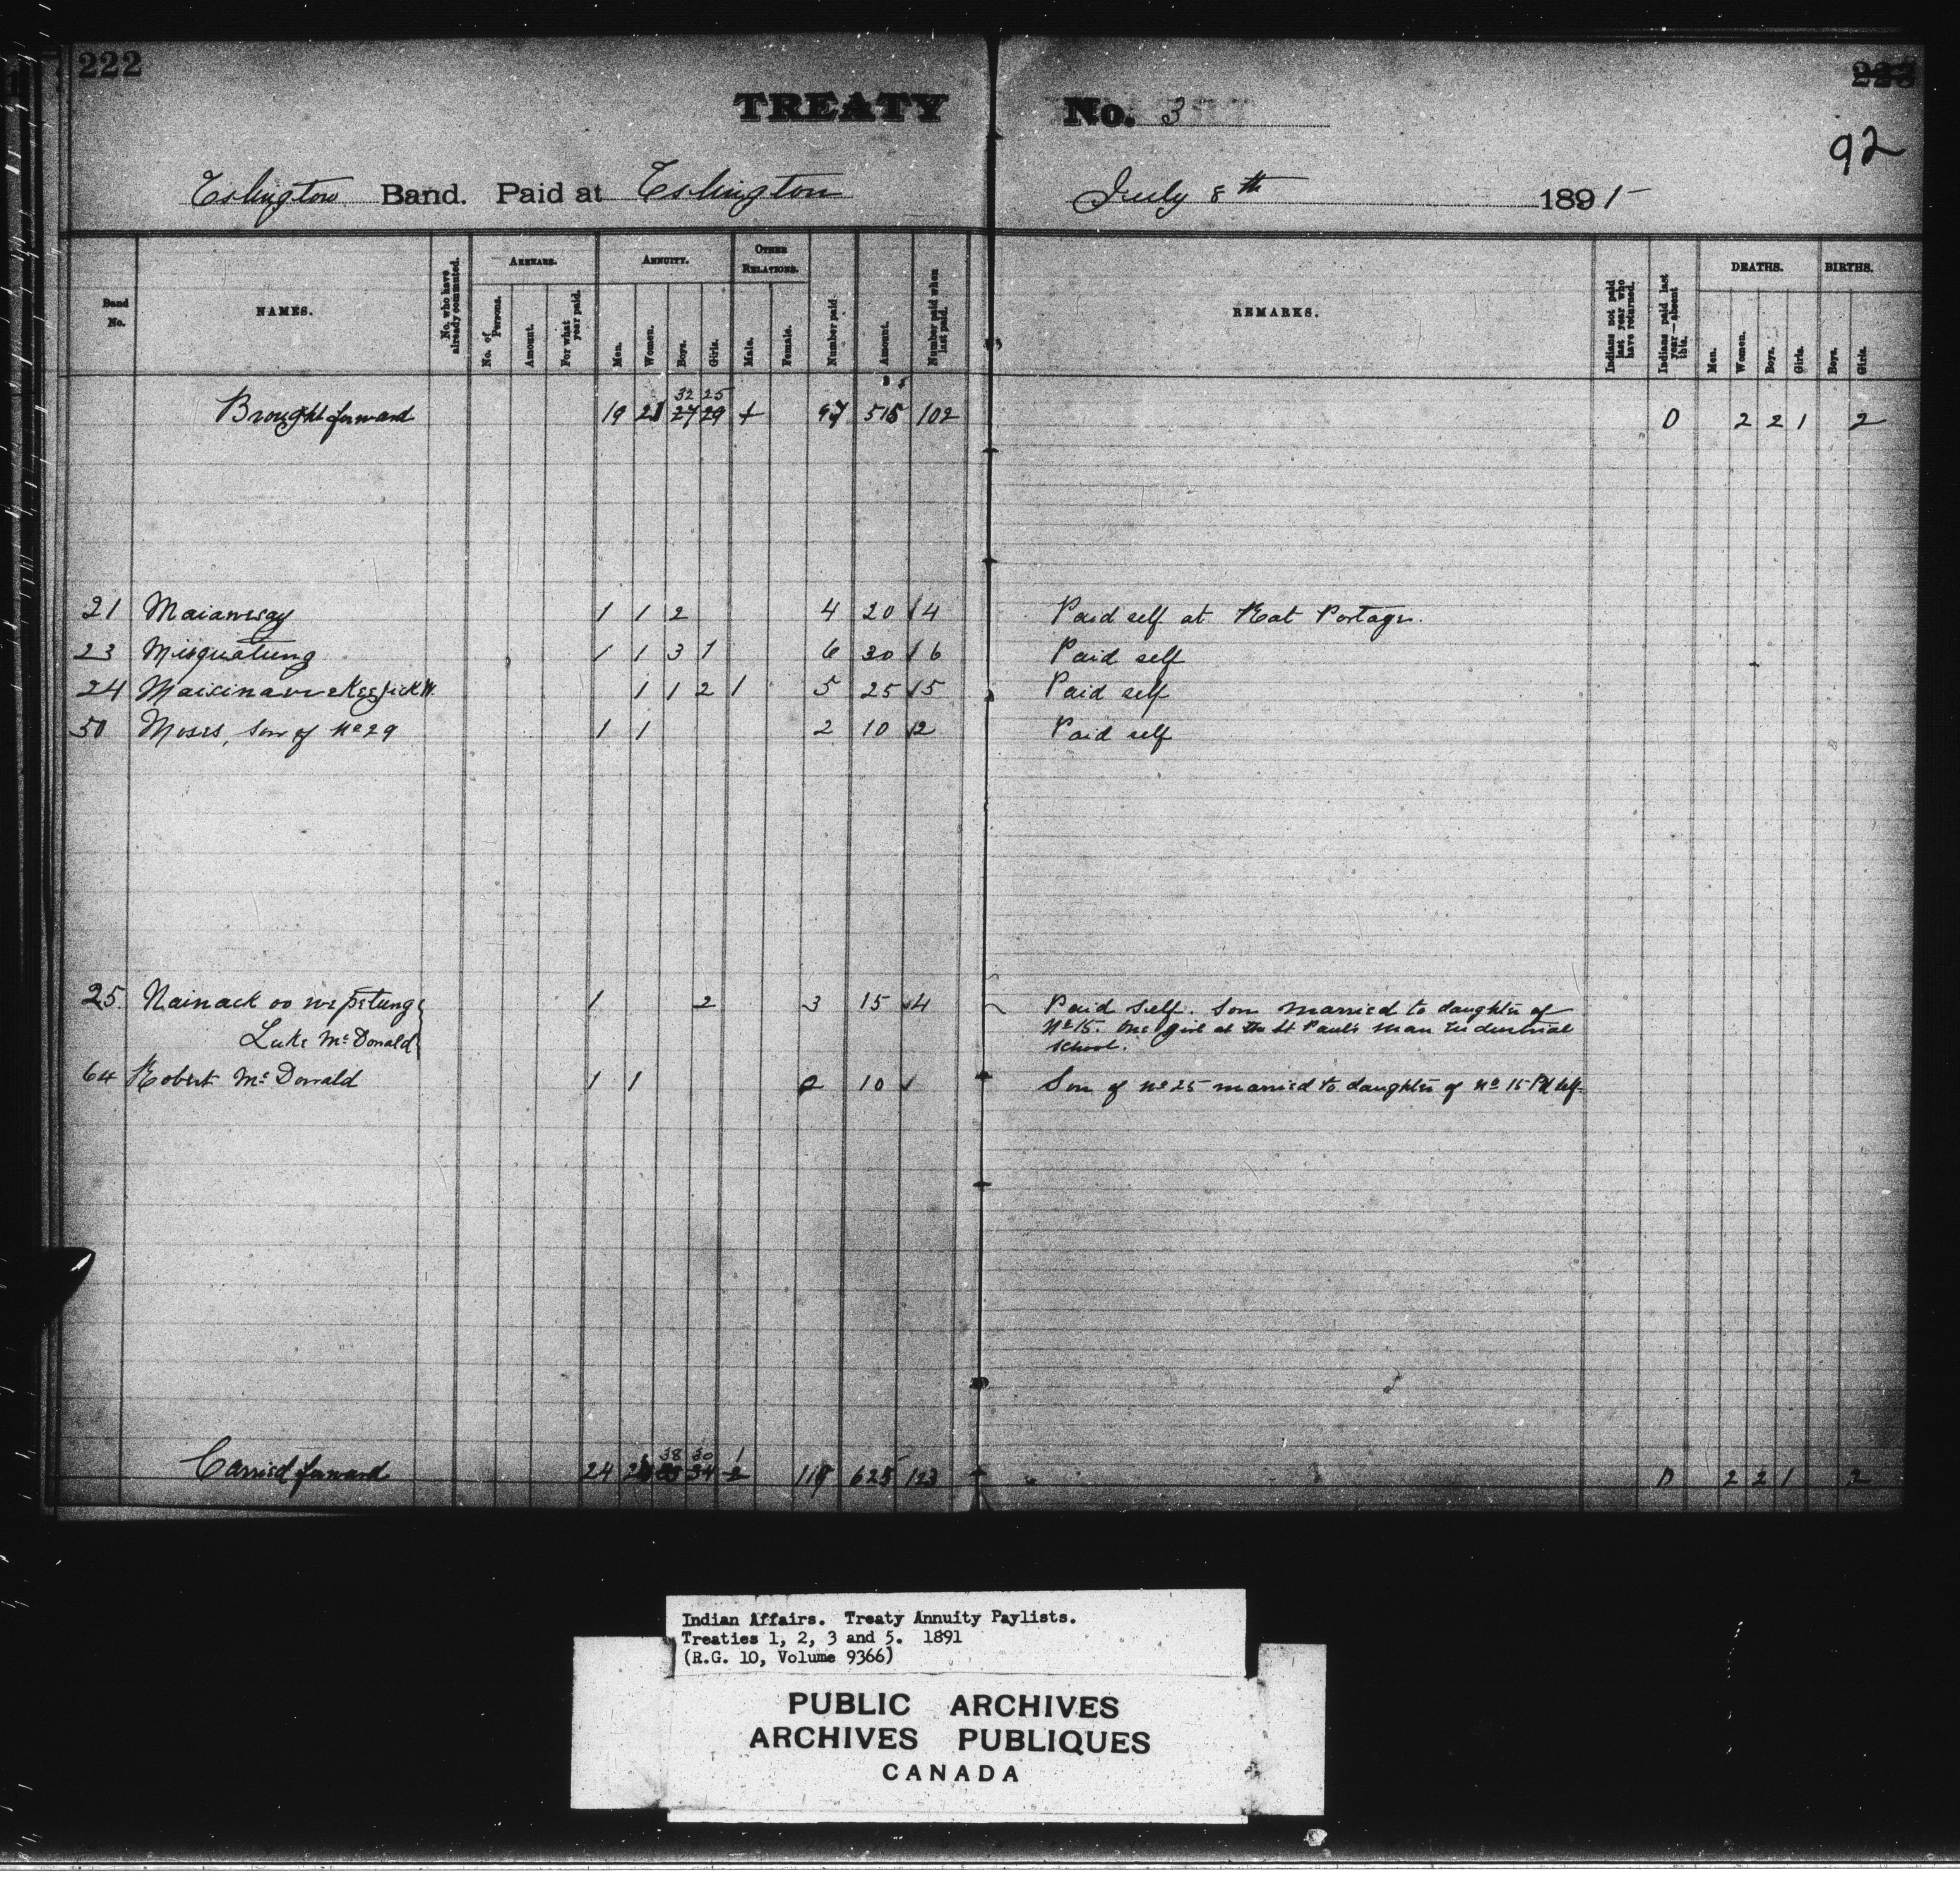 222
TREATY No. 3
92
Eslington Band. Paid at Eslington July 8th 1891
Band No. NAMES. No. who have already commuted. ARREARS. No. of Persons. Amount. For what year paid. ANNUITY. Men. Women. Boys. Girls. OTHER RELATIONS. Male. Female. Number paid Amount. Number paid when last paid. REMARKS. Indians not paid last year who have returned. Indians paid last year—absent this. DEATHS. Men. Women. Boys. Girls. BIRTHS. Boys. Girls.
32 25
Brought forward 19 21 27 29 97 515 102 0 2 2 1 2
21 Maianway 1 1 2 4 20 4 Paid self at Rat Portage.
23 Misquatung 1 1 3 1 6 30 6 Paid self
24 1 1 2 1 5 25 5 Paid self
50 Moses, son of No 29 1 1 2 10 2 Paid self
25. Nainack oo we petung 1 2 3 15 4 Paid self. Son married to daughter of
Luke McDonald No 15. One girl at the St Paul's Man Industrial
school.
64 Robert McDonald 1 1 2 10 Son of No 25 married to daughter of No 15 Pd self
38 30 1
Carried forward 24 34 2 625 123 0 2 2 1 2
Indian Affairs. Treaty Annuity Paylists.
Treaties 1, 2, 3 and 5. 1891
(R.G. 10, Volume 9366)
PUBLIC ARCHIVES
ARCHIVES PUBLIQUES
CANADA